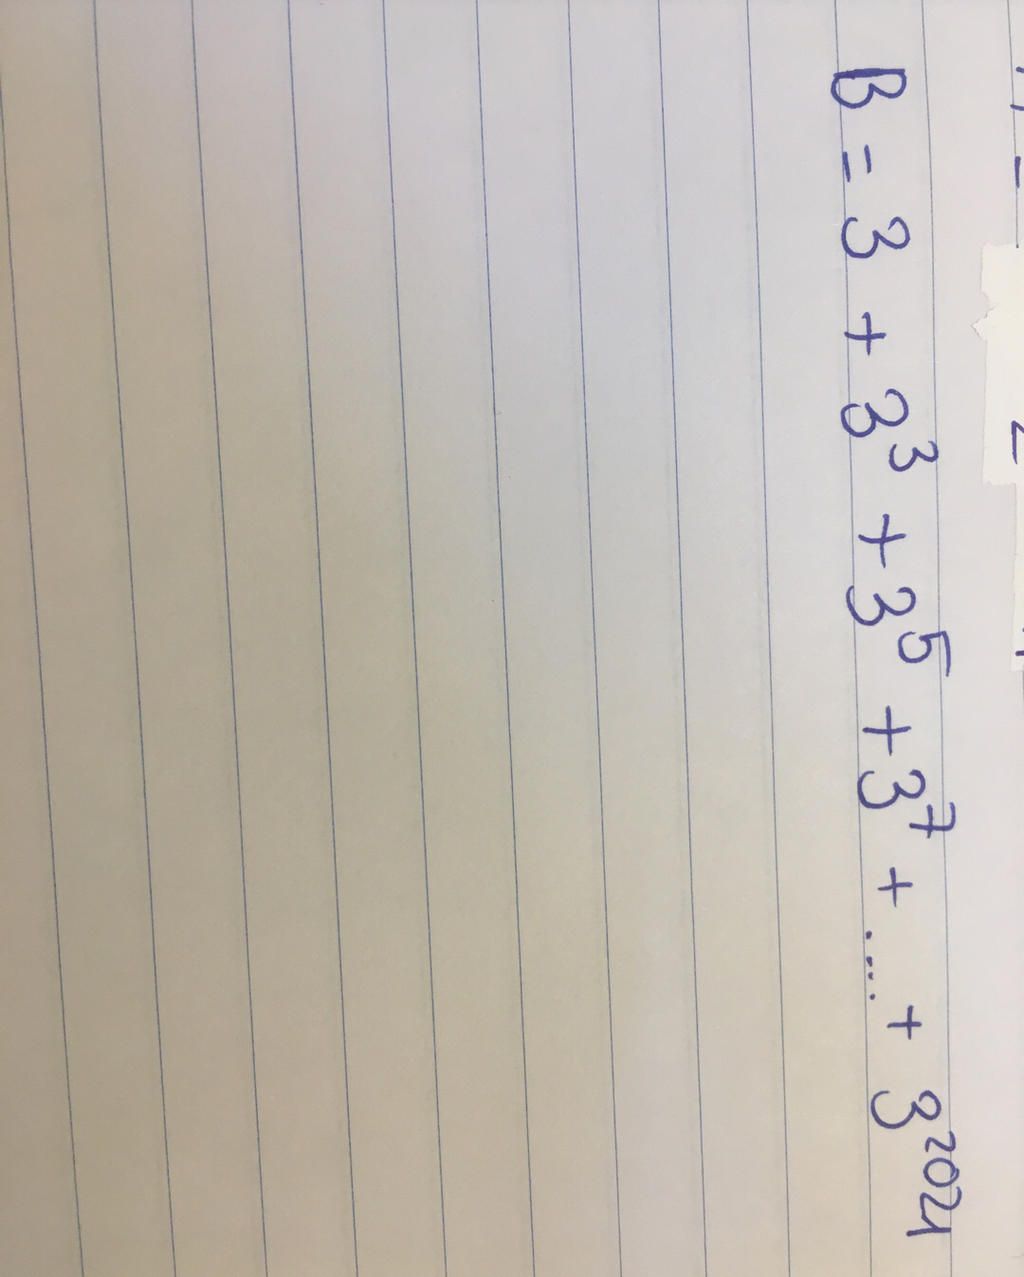 B = 3 + 3³ + 3⁵ + 3⁷ + .... + 3²⁰²¹